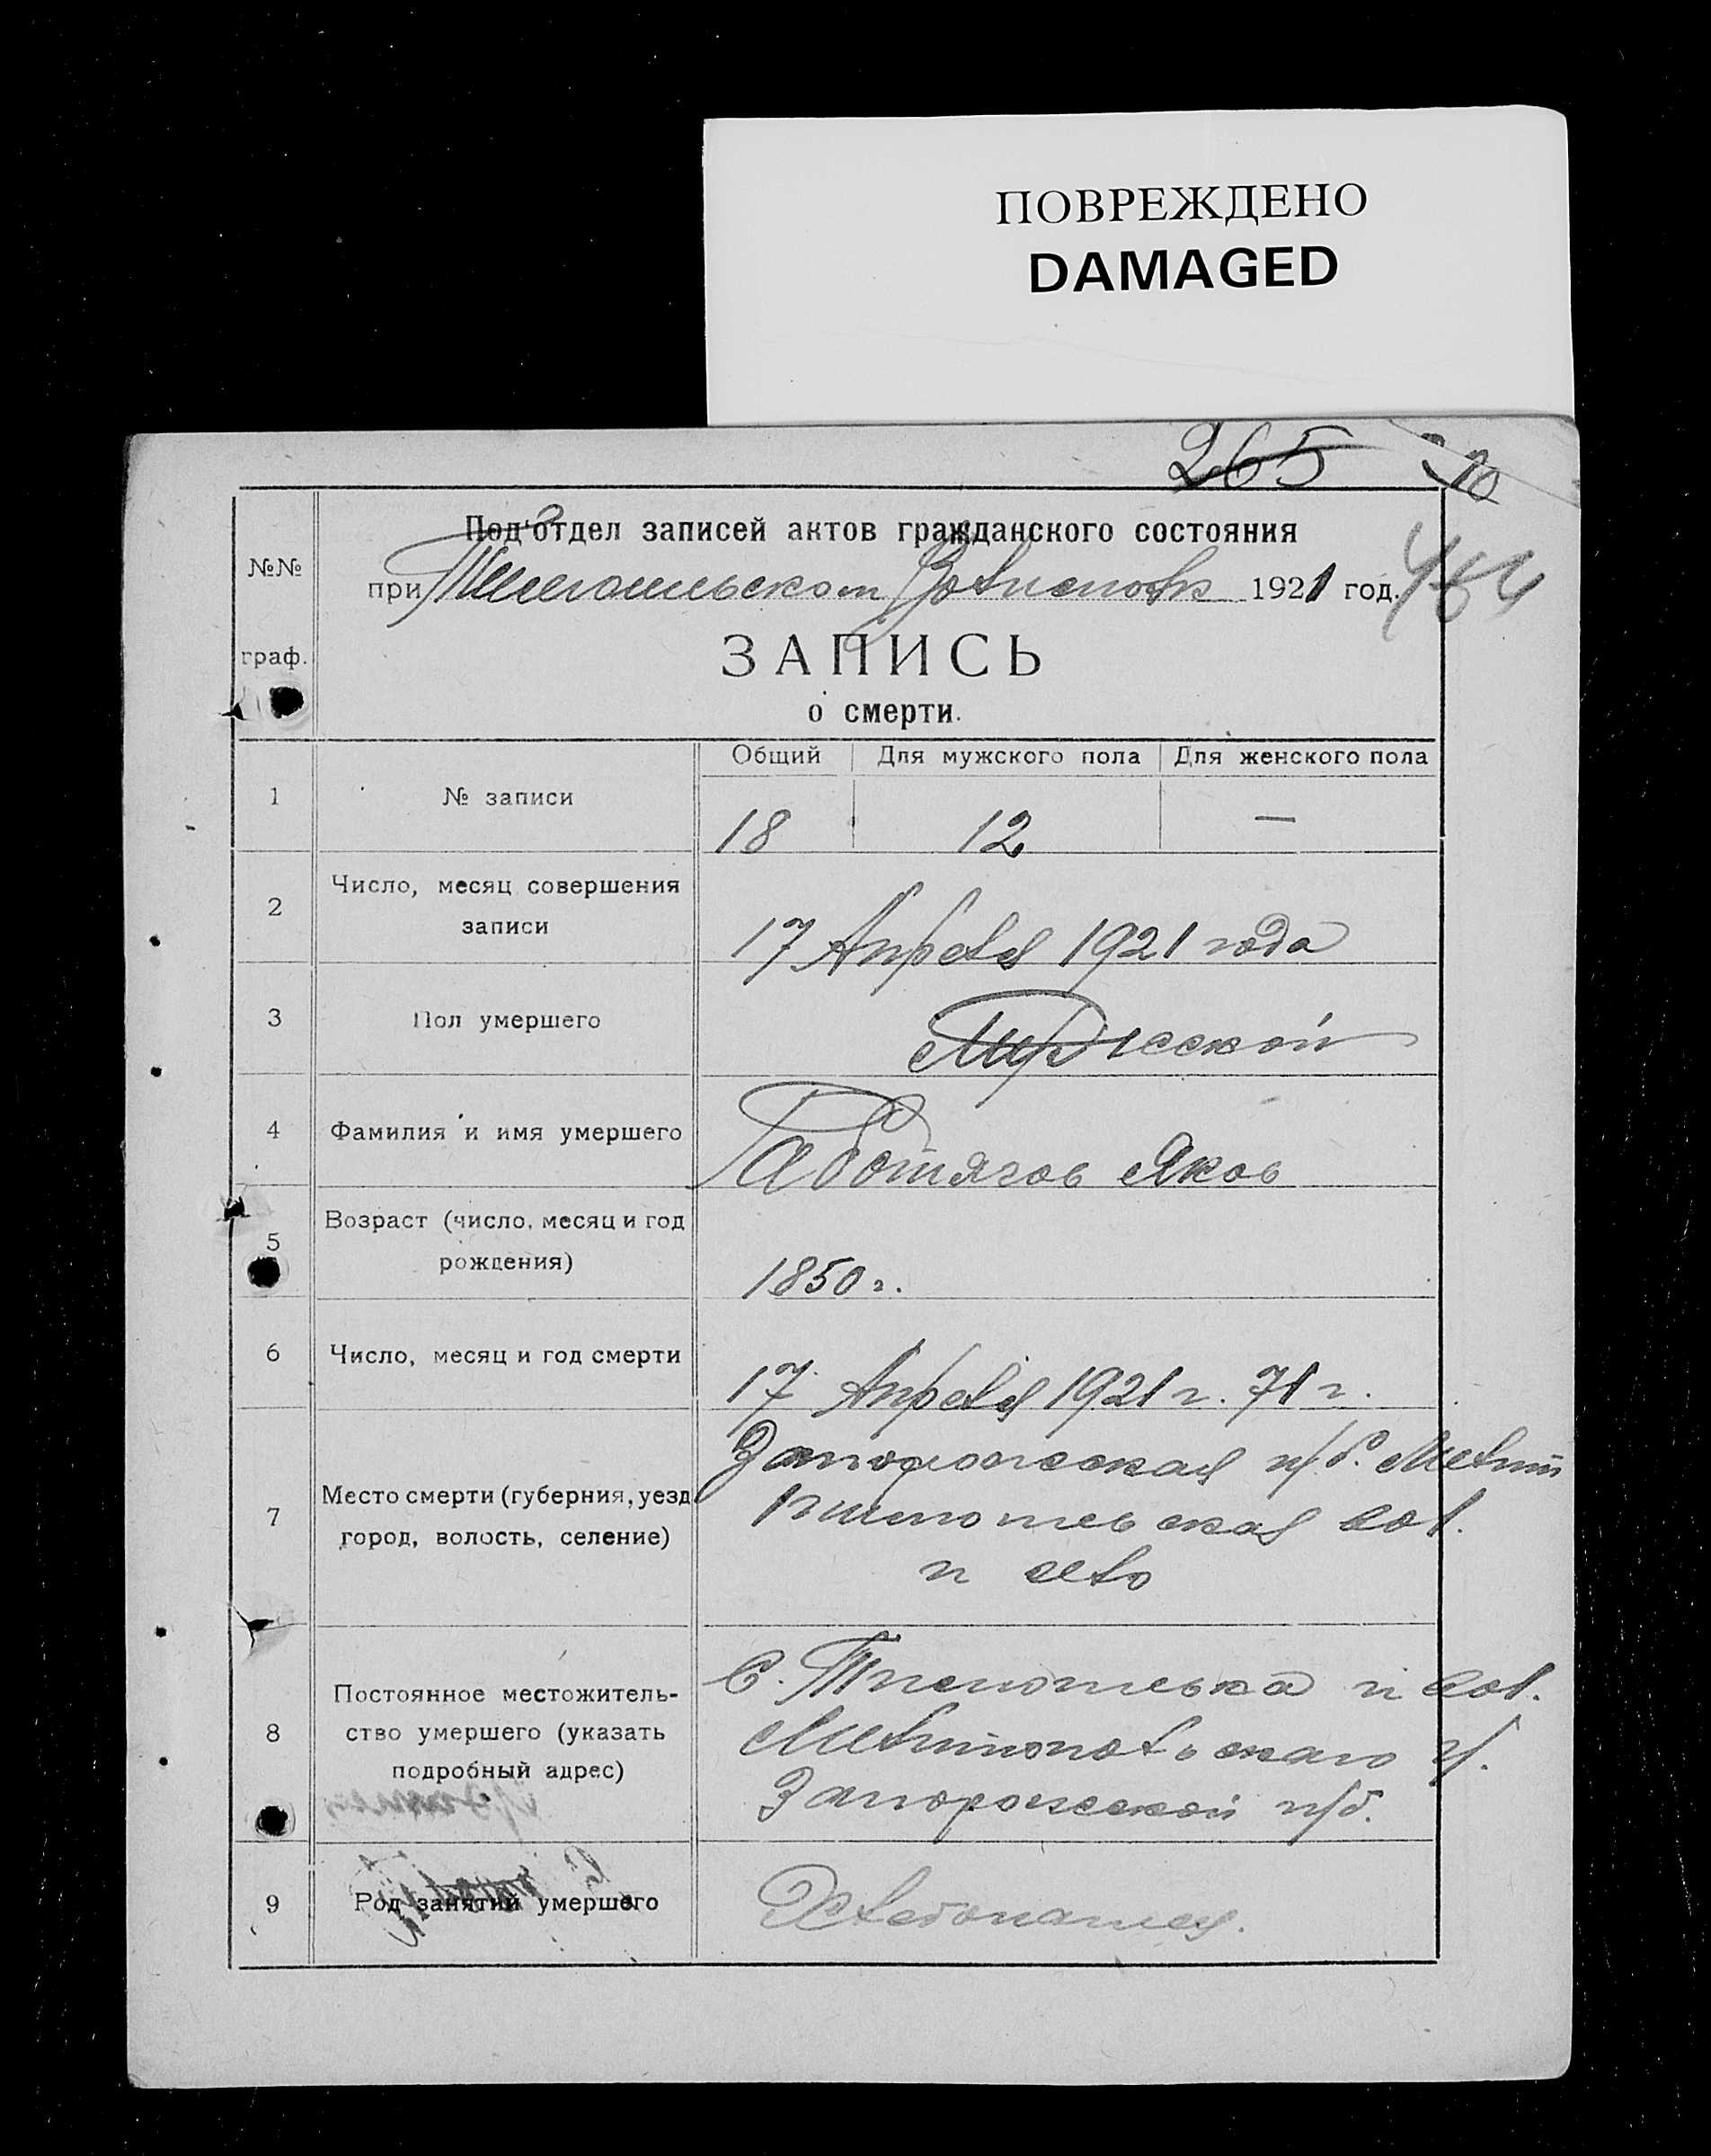 ПОВРЕЖДЕНО
DAMAGED
265
№№ граф.
Под'отдел записей актов гражданского состояния
при Волисполк 1921 год.
ЗАПИСЬ
о смерти.
Общий Для мужского пола Для женского пола
1 № записи 18 12 —
2 Число, месяц совершения
записи 17 Апреля 1921 года
3 Пол умершего Мужеской
4 Фамилия и имя умершего Работягов Яков
5 Возраст (число, месяц и год
рождения) 1850 г.
6 Число, месяц и год смерти 17 Апреля 1921 г. 71 г.
7 Место смерти (губерния, уезд Запорожская г/б. Мелит
город, волость, селение) вол.
и село
8 Постоянное местожитель-
ство умершего (указать
подробный адрес)
С. и вол.
Мелитопольскаго у.
Запорожской г/б.
9 Род занятий умершего Хлебопашец.